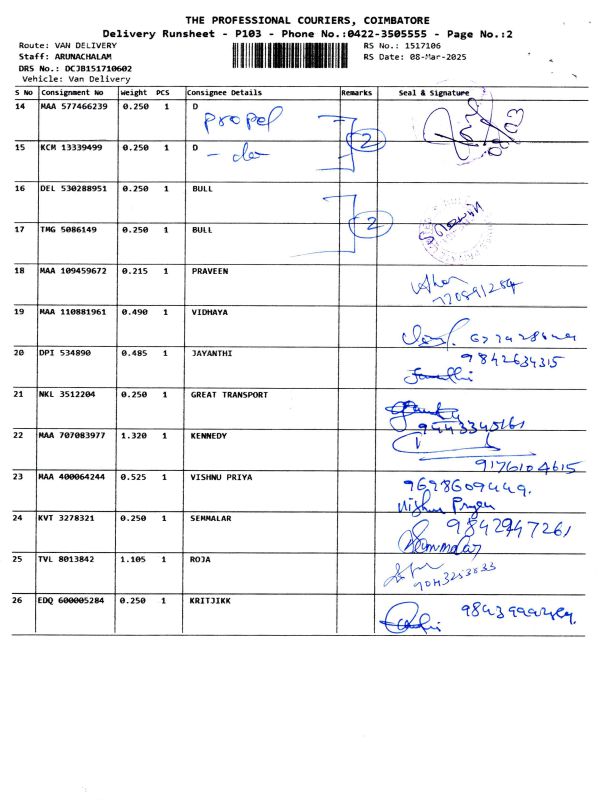 THE PROFESSIONAL COURIERS, COIMBATORE
Delivery Runsheet - P103 - Phone No.:0422-3505555 - Page No.:2
Route: VAN DELIVERY RS No.: 1517106
Staff: ARUNACHALAM RS Date: 08-Mar-2025
DRS No.: DCJB151710602
Vehicle: Van Delivery
S No Consignment No Weight PCS Consignee Details Remarks Seal & Signature
14 MAA 577466239 0.250 1 D
propel
2
15 KCM 13339499 0.250 1 D
- do -
16 DEL 530288951 0.250 1 BULL
2
17 TMG 5086149 0.250 1 BULL
18 MAA 109459672 0.215 1 PRAVEEN
19 MAA 110881961 0.490 1 VIDHAYA
20 DPI 534890 0.485 1 JAYANTHI
9842634315
21 NKL 3512204 0.250 1 GREAT TRANSPORT
9443345161
22 MAA 707083977 1.320 1 KENNEDY
9176104615
23 MAA 400064244 0.525 1 VISHNU PRIYA
9698609449.
Vishnu Priya
24 KVT 3278321 0.250 1 SEMMALAR
9842947261
Semmalar
25 TVL 8013842 1.105 1 ROJA
26 EDQ 600005284 0.250 1 KRITJIKK